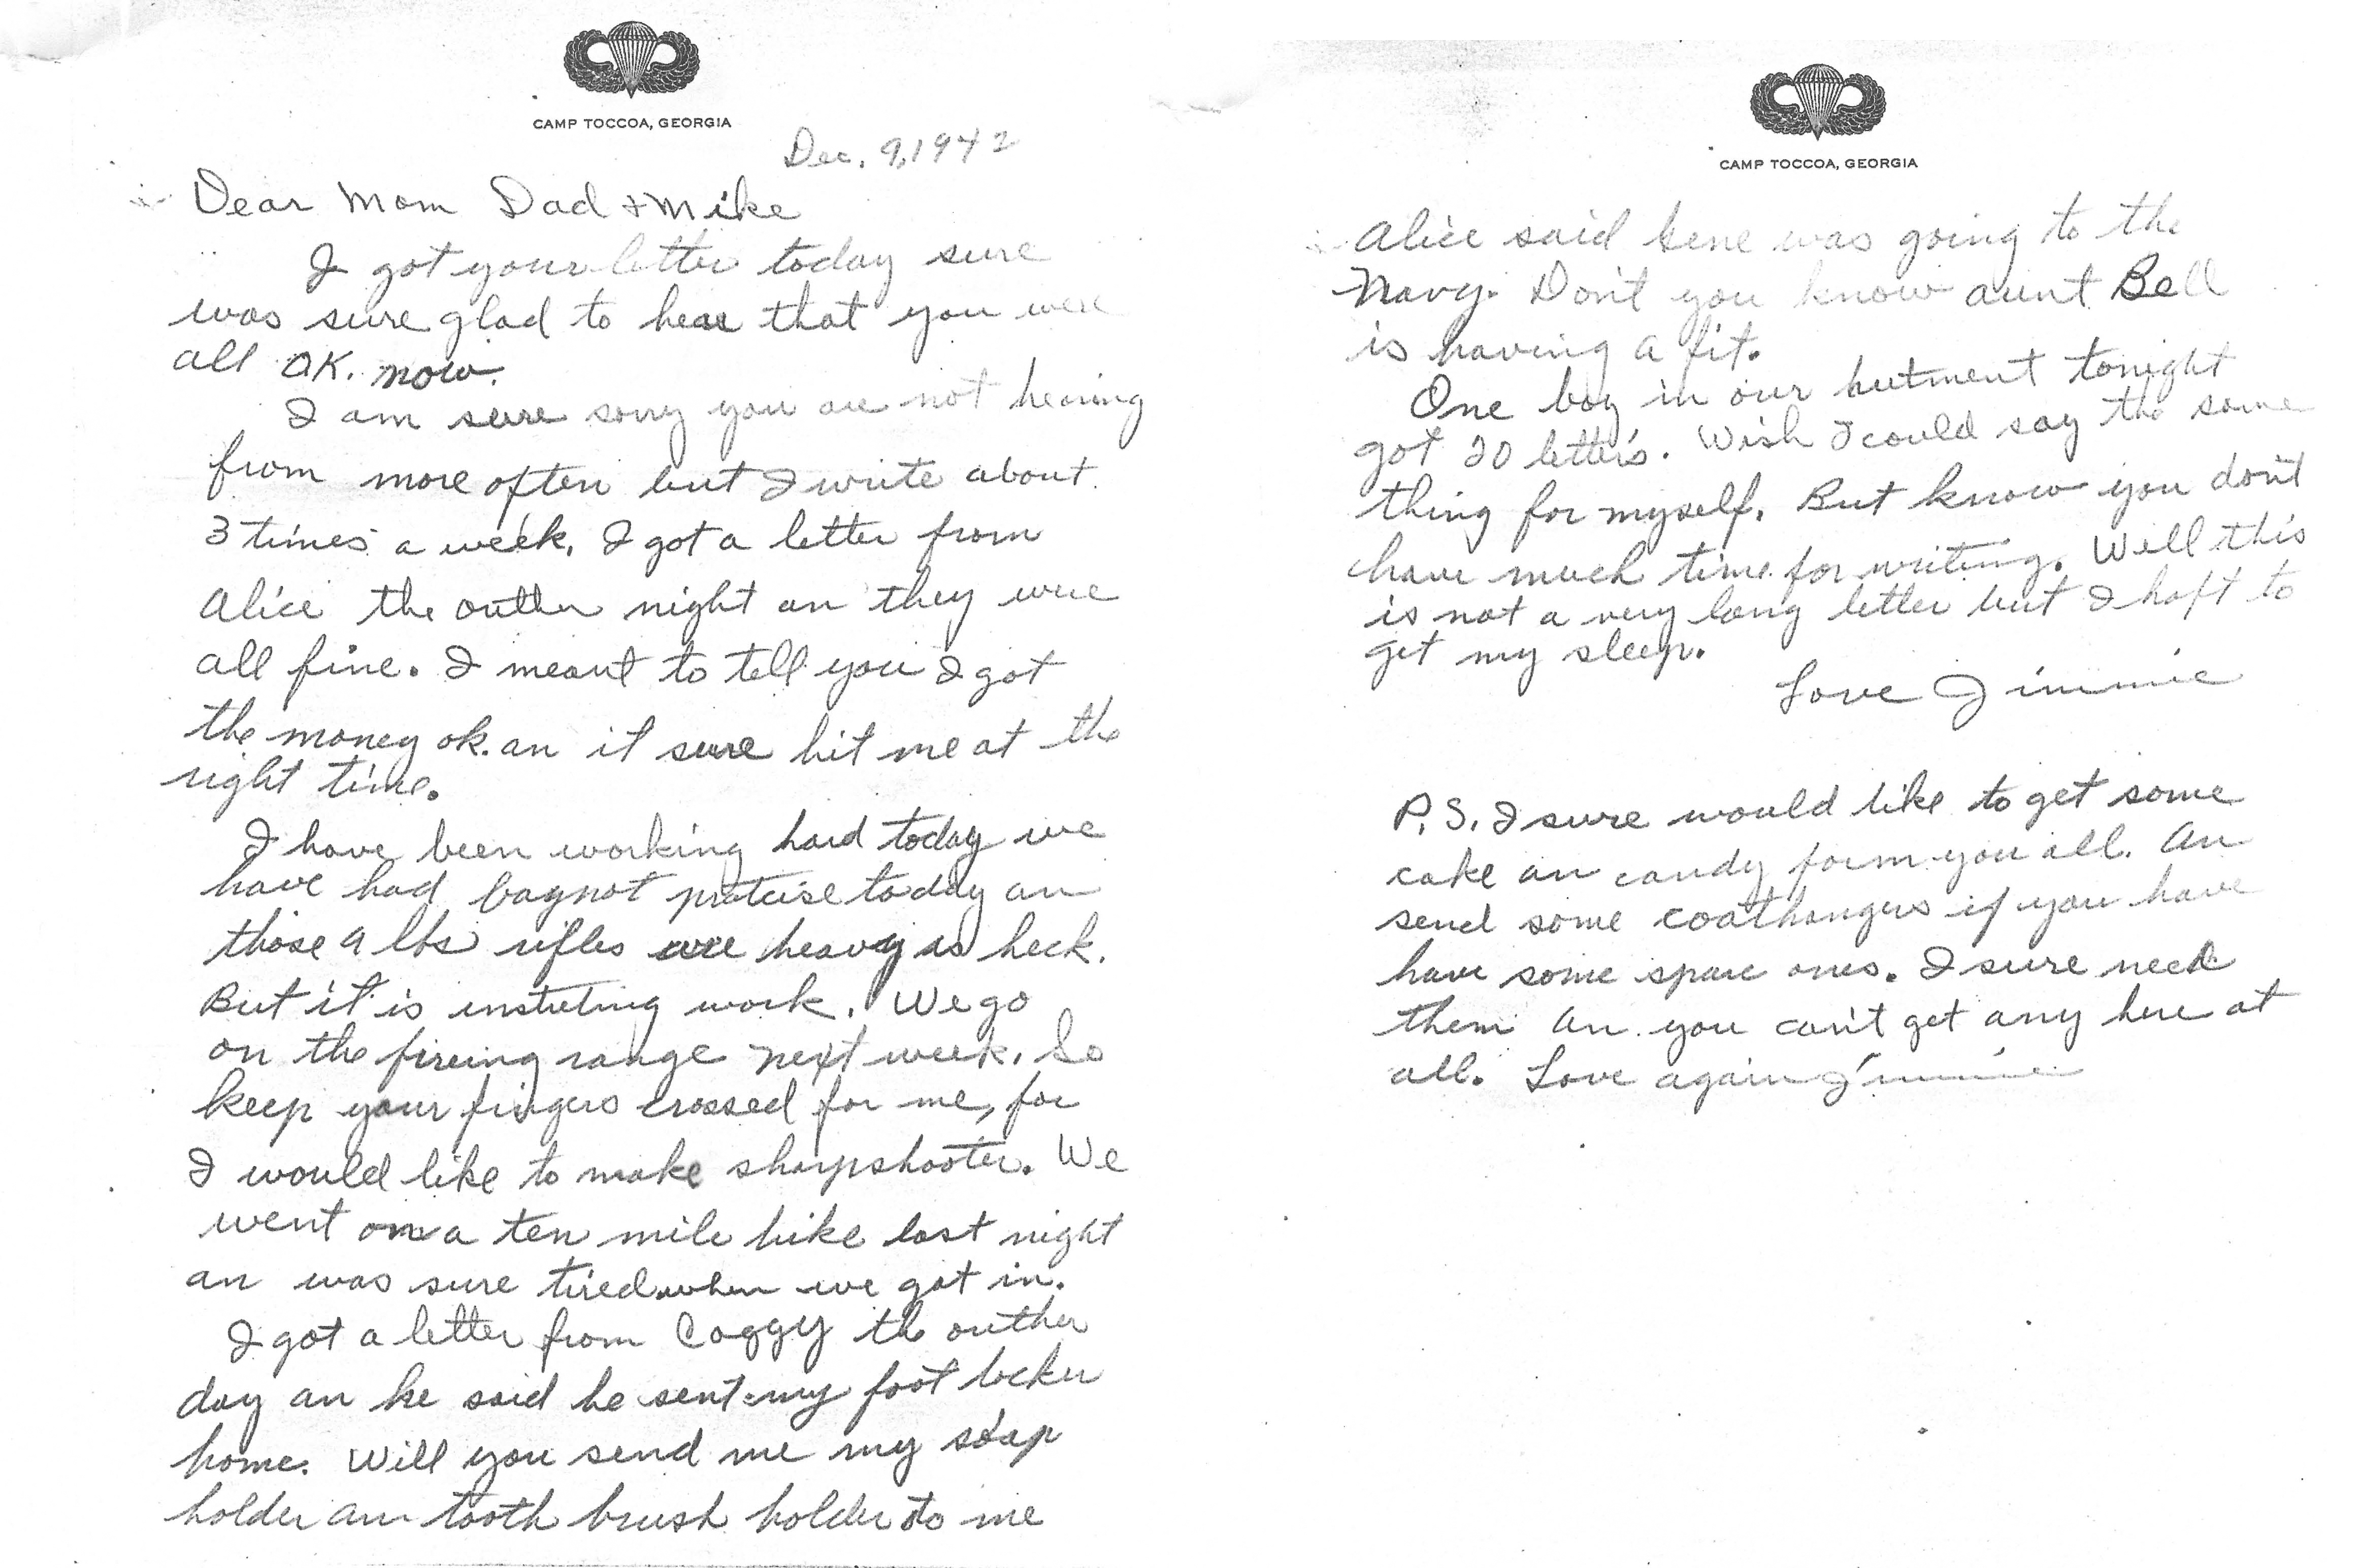 CAMP TOCCOA, GEORGIA
Dec. 9, 1942
Dear Mom Dad + Mike
I got your letter today sure
was sure glad to hear that you were
all OK. now.
I am sure sorry you are not hearing
from more often but I write about
3 times a week. I got a letter from
Alice the outher night an they were
all fine. I meant to tell you I got
the money ok. an it sure hit me at the
right time.
I have been working hard today we
have had baynot pratcise today an
those 9 lbs rifles are heavy as heck.
But it is work. We go
on the fireing range next week. So
keep your fingers crossed for me, for
I would like to make sharpshooter. We
went on a ten mile hike last night
an was sure tired when we got in.
I got a letter from Coggy the outher
day an he said he sent my foot locker
home. Will you send me my soap
holder an tooth brush holder to me
CAMP TOCCOA, GEORGIA
Alice said Gene was going to the
Navy. Don't you know aunt Bell
is having a fit.
One boy in our hutment tonight
got 20 letters. Wish I could say the same
thing for myself. But know you don't
have much time for writing. Well this
is not a very long letter but I haft to
get my sleep.
Love Jimmie
P.S. I sure would like to get some
cake an candy form you all. An
send some coathangers if you have
have some spare ones. I sure need
them an you can't get any here at
all. Love again Jimmie